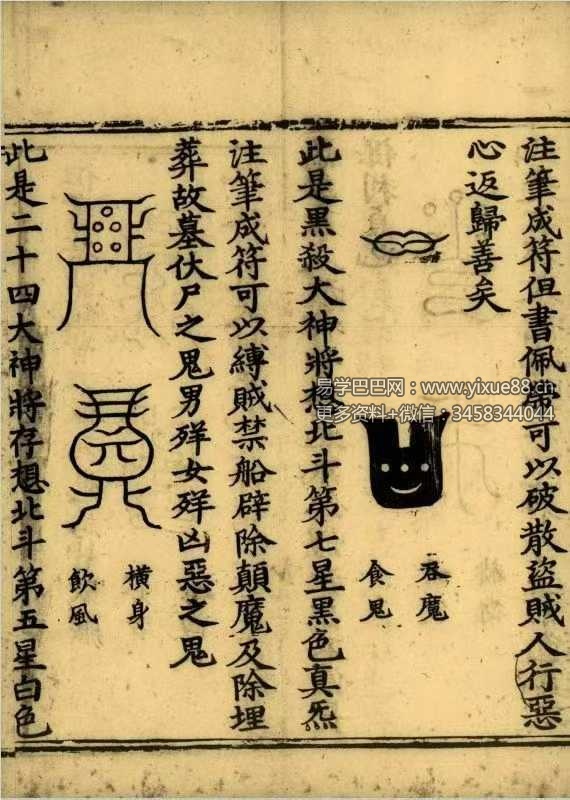 注筆成符但書佩帶可以破散盜賊人行惡
心返歸善矣
吞魔
食鬼
此是黑殺大神將想北斗第七星黑色真炁
注筆成符可以縛賊禁船辟除顛魔及除埋
葬故墓伏尸之鬼男殍女殍凶惡之鬼
橫身
飲風
此是二十四大神將存想北斗第五星白色
易学巴巴网：www.yixue88.cn
更多资料+微信：3458344044